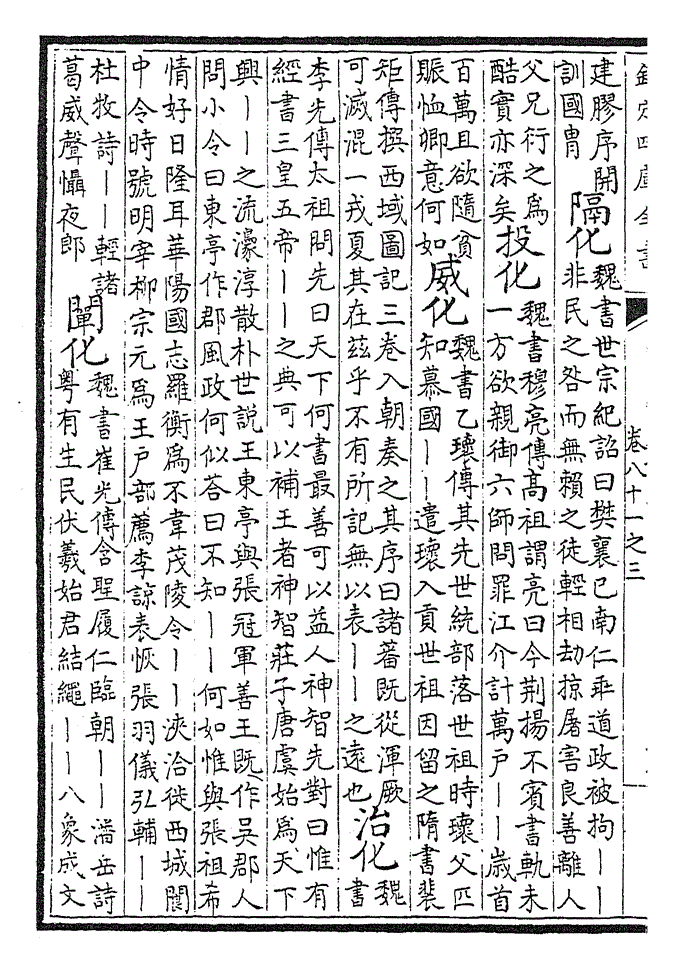 欽定四庫全書
卷八十一之三
建膠序開
訓國胄
隔化
魏書世宗紀詔曰樊襄已南仁乖道政被拘丨丨
非民之咎而無賴之徒輕相劫掠屠害良善離人
父兄衍之爲
酷實亦深矣
投化
魏書穆亮傳髙祖謂亮曰今荆揚不賓書軌未
一方欲親御六師問罪江介計萬戸丨丨歳首
百萬且欲隨貧
賑恤卿意何如
威化
魏書乙瓌傳其先世統部落世祖時瓌父匹
知慕國丨丨遣瓌入貢世祖因留之隋書裴
矩傳撰西域圖記三卷入朝奏之其序曰諸蕃既從渾厥
可滅混一戎夏其在兹乎不有所記無以表丨丨之遠也
治化
魏
書
李先傳太祖問先曰天下何書最善可以益人神智先對曰惟有
經書三皇五帝丨丨之典可以補王者神智莊子唐虞始爲天下
興丨丨之流濠淳散朴世説王東亭與張冠軍善王既作吳郡人
問小令曰東亭作郡風政何似荅曰不知丨丨何如惟與張祖希
情好日隆耳華陽國志羅衡爲不韋茂陵令丨丨浹洽徙西城閬
中令時號明宰柳宗元爲王戸部薦李諒表恢張羽儀弘輔丨丨
杜牧詩丨丨輕諸
葛威聲懾夜郎
闡化
魏書崔光傳含聖履仁臨朝丨丨潘岳詩
粤有生民伏羲始君結繩丨丨八象成文